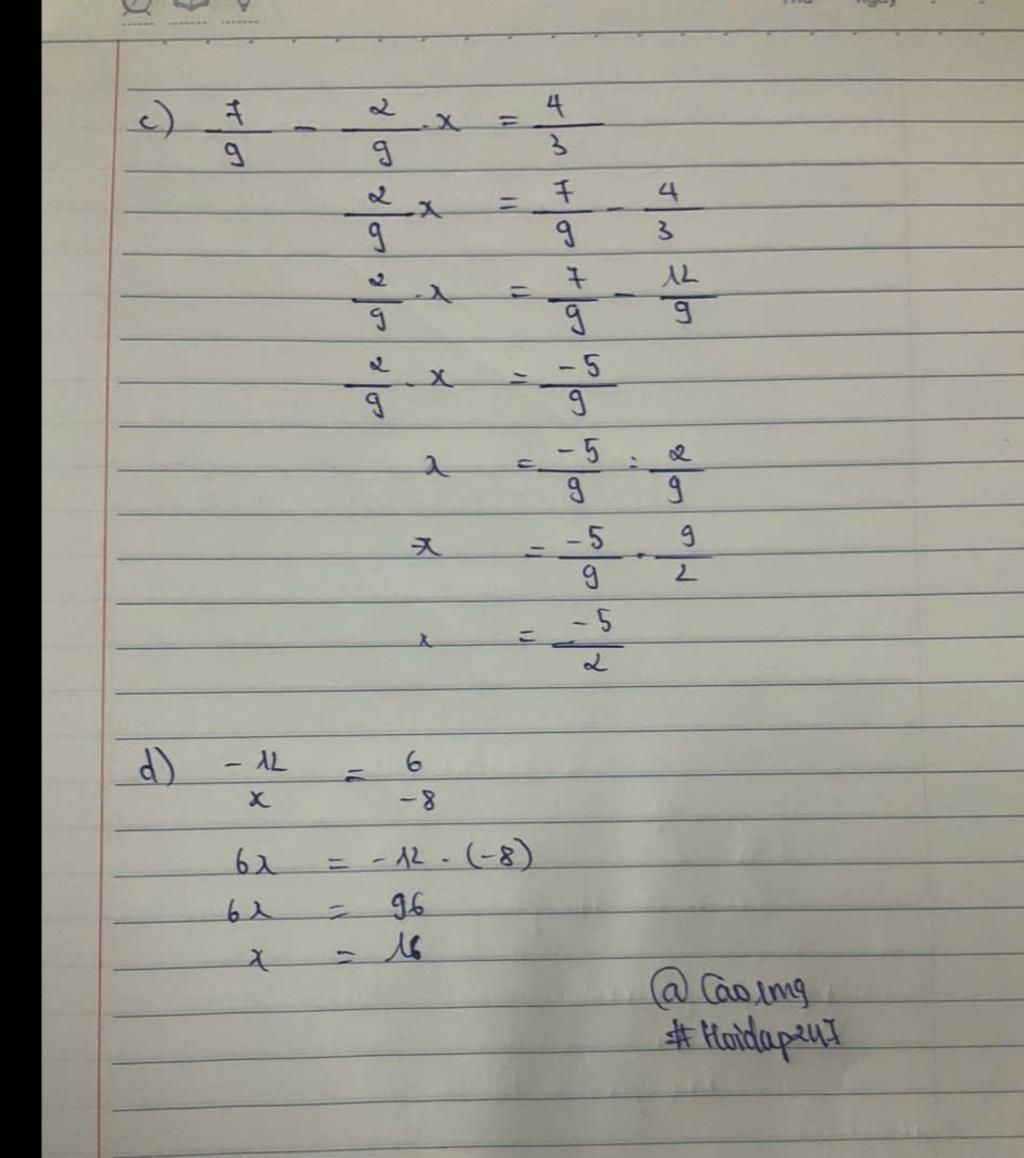 c) 7/9 - 2/9 . x = 4/3
2/9 x = 7/9 - 4/3
2/9 . x = 7/9 - 12/9
2/9 . x = -5/9
x = -5/9 : 2/9
x = -5/9 . 9/2
x = -5/2
d) -12/x = 6/-8
6x = -12 . (-8)
6x = 96
x = 16
#Hoidap247